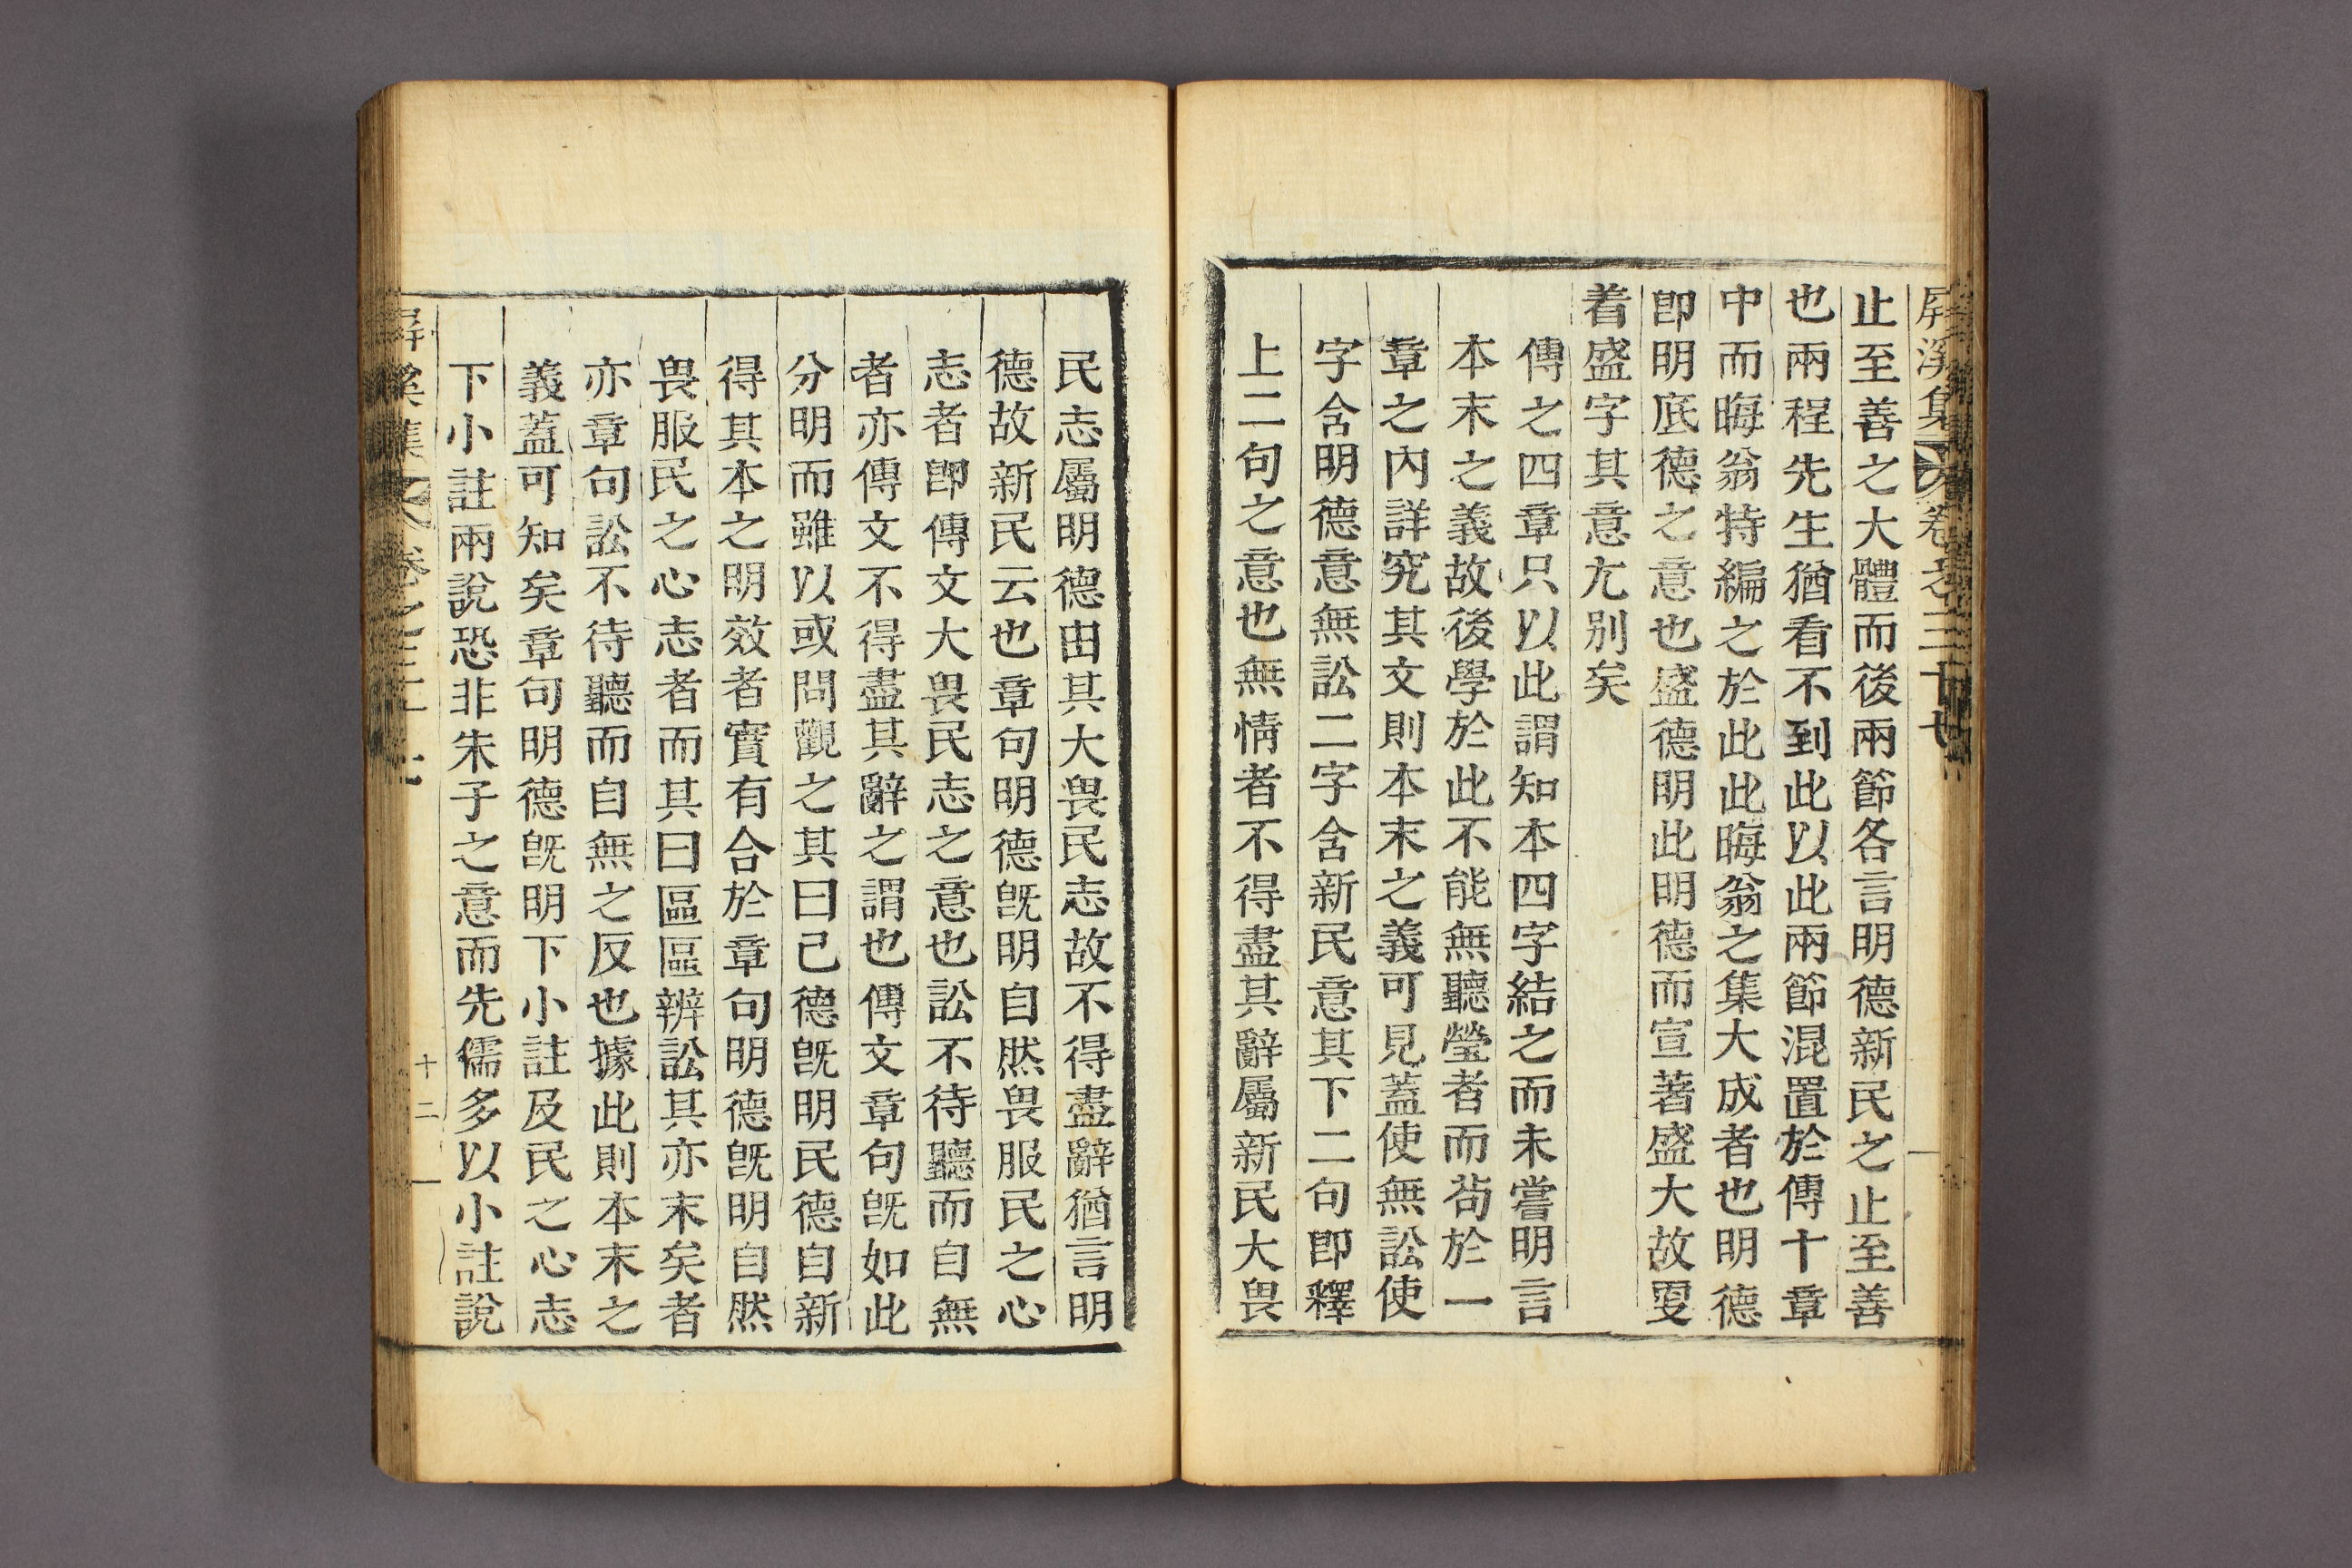 屛溪集 卷之三十七
止至善之大體而後兩節各言明德新民之止至善
也兩程先生猶看不到此以此兩節混置於傳十章
中而晦翁特編之於此此晦翁之集大成者也明德
卽明底德之意也盛德明此明德而宣著盛大故更
着盛字其意尤別矣
傳之四章只以此謂知本四字結之而未嘗明言
本末之義故後學於此不能無聽瑩者而茍於一
章之內詳究其文則本末之義可見蓋使無訟使
字含明德意無訟二字含新民意其下二句卽釋
上二句之意也無情者不得盡其辭屬新民大畏
民志屬明德由其大畏民志故不得盡辭猶言明
德故新民云也章句明德旣明自然畏服民之心
志者卽傳文大畏民志之意也訟不待聽而自無
者亦傳文不得盡其辭之謂也傳文章句旣如此
分明而雖以或問觀之其曰己德旣明民德自新
得其本之明效者實有合於章句明德旣明自然
畏服民之心志者而其曰區區辨訟其亦末矣者
亦章句訟不待聽而自無之反也據此則本末之
義蓋可知矣章句明德旣明下小註及民之心志
下小註兩說恐非朱子之意而先儒多以小註說
屛溪集 卷之三十七 十二